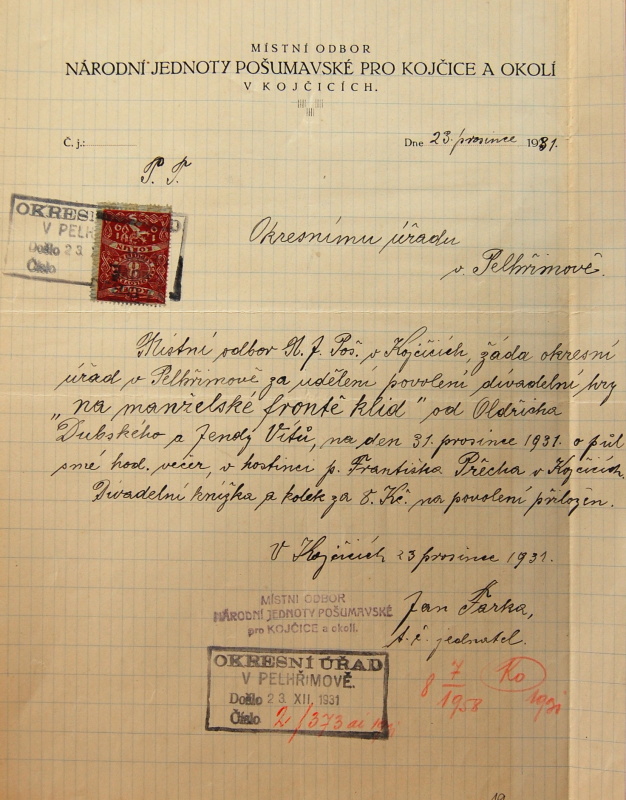 MÍSTNÍ ODBOR
NÁRODNÍ JEDNOTY POŠUMAVSKÉ PRO KOJČICE A OKOLÍ
V KOJČICÍCH.
Č. j.:
Dne 23. prosince 1931.
P. T.
OKRESNÍ ÚŘAD
V PELH
Došlo 23
Číslo
Okresnímu úřadu
v Pelhřimově.
Místní odbor N. J. Poš. v Kojčicích, žáda okresní
úřad v Pelhřimově za udělení povolení divadelní hry
"na manželské frontě klid" od Oldřicha
Dubského a Jendy Vítů, na den 31. prosince 1931. o půl
smé hod. večer, v hostinci p. Františka Přecha v Kojčicích.
Divadelní knížka a kolek za 8. Kč. na povolení přiložen.
V Kojčicích 23 prosince 1931.
MÍSTNÍ ODBOR
NÁRODNÍ JEDNOTY POŠUMAVSKÉ
pro KOJČICE a okolí.
Jan Farka,
t. č. jednatel.
OKRESNÍ ÚŘAD
V PELHŘIMOVĚ.
Došlo 23. XII. 1931
Číslo 2/373
8 7/1958
Ko
1931
19